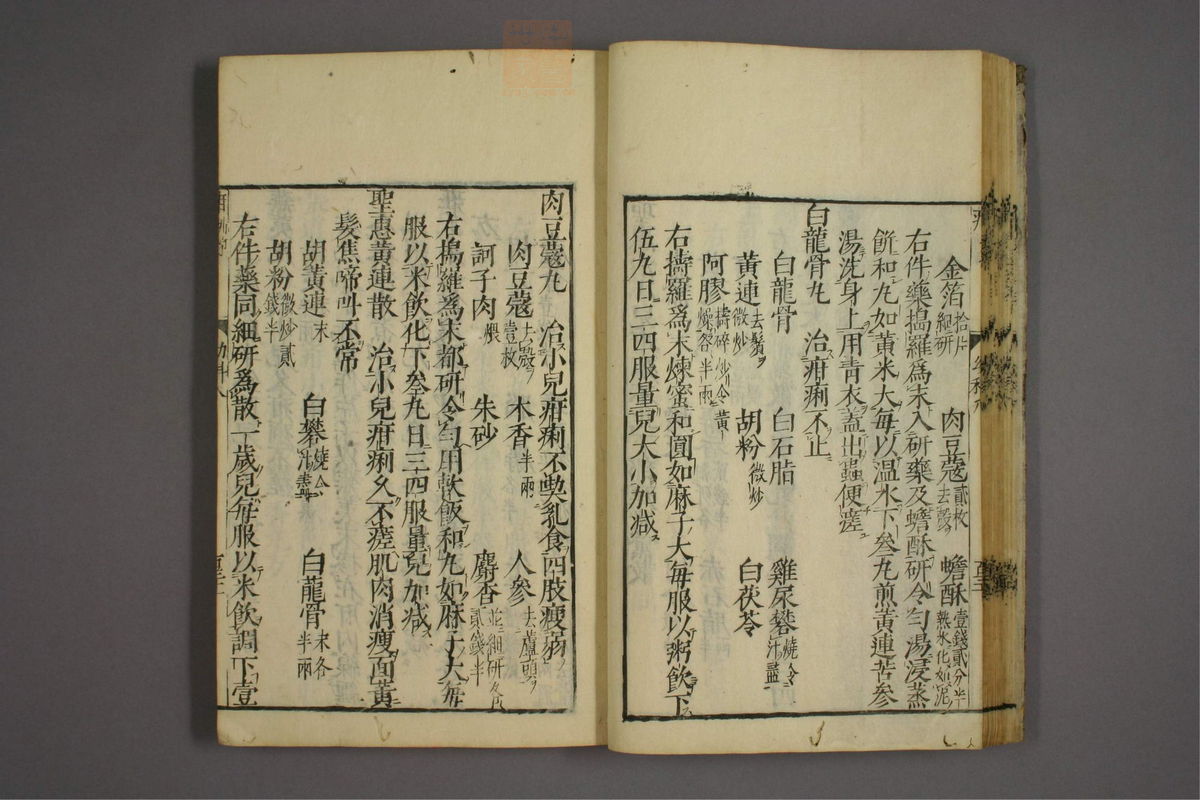 金箔拾片細研　肉豆蔻貳枚去殼　蟾酥壹錢貳分半熱水化如泥
右件藥搗羅爲末入研藥及蟾酥研令勻湯浸蒸
餅和丸如黃米大每以温水下叁丸煎黃連苦參
湯洗身上用青衣蓋出蟲便瘥
白龍骨丸　治疳痢不止
白龍骨　白石脂　雞屎礬燒令汁盡
黃連去鬚微炒　胡粉微炒　白茯苓
阿膠擣碎炒令黃燥各半兩
右擣羅爲末煉蜜和圓如麻子大每服以粥飲下
伍丸日三四服量兒大小加减
肉豆蔻丸　治小兒疳痢不喫乳食四肢瘦弱
肉豆蔻去殼壹枚　木香半兩　人參去蘆頭
訶子肉煨　朱砂　麝香並細研各貳錢半
右搗羅爲末都研令勻用軟飯和丸如麻子大每
服以米飲化下叁丸日三四服量兒加减
聖惠黃連散　治小兒疳痢久不瘥肌肉消瘦面黃
髮焦啼叫不常
胡黃連末　白礬燒令汁盡　白龍骨末各半兩
胡粉微炒貳錢半
右件藥同細研爲散一歲兒每服以米飲調下壹